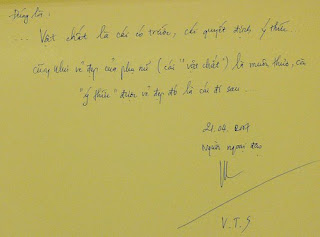 ... Vật chất là cái có trước, cái quyết định ý thức.
cũng như vẻ đẹp của phụ nữ (cái "vật chất") là muôn thuở, còn
"ý thức" được vẻ đẹp đó là cái đi sau...
21.02.2007
Người ngoại đạo
V.T.S